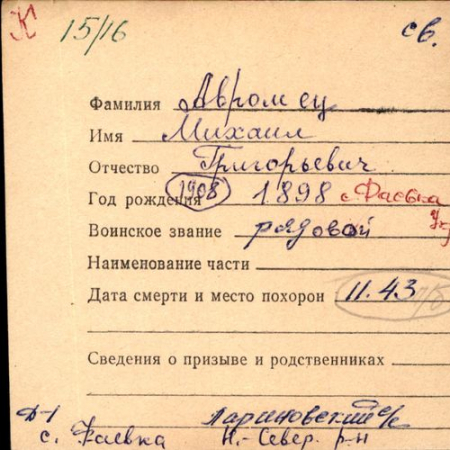 К 15/16 св.
Фамилия Авромец
Имя Михаил
Отчество Григорьевич
Год рождения 1908 1898 с. Фаевка
Воинское звание рядовой
Наименование части
Дата смерти и место похорон 11.43 п/б
Сведения о призыве и родственниках
Д-1 Лариновский с/с
с. Фаевка Н.-Север. р-н